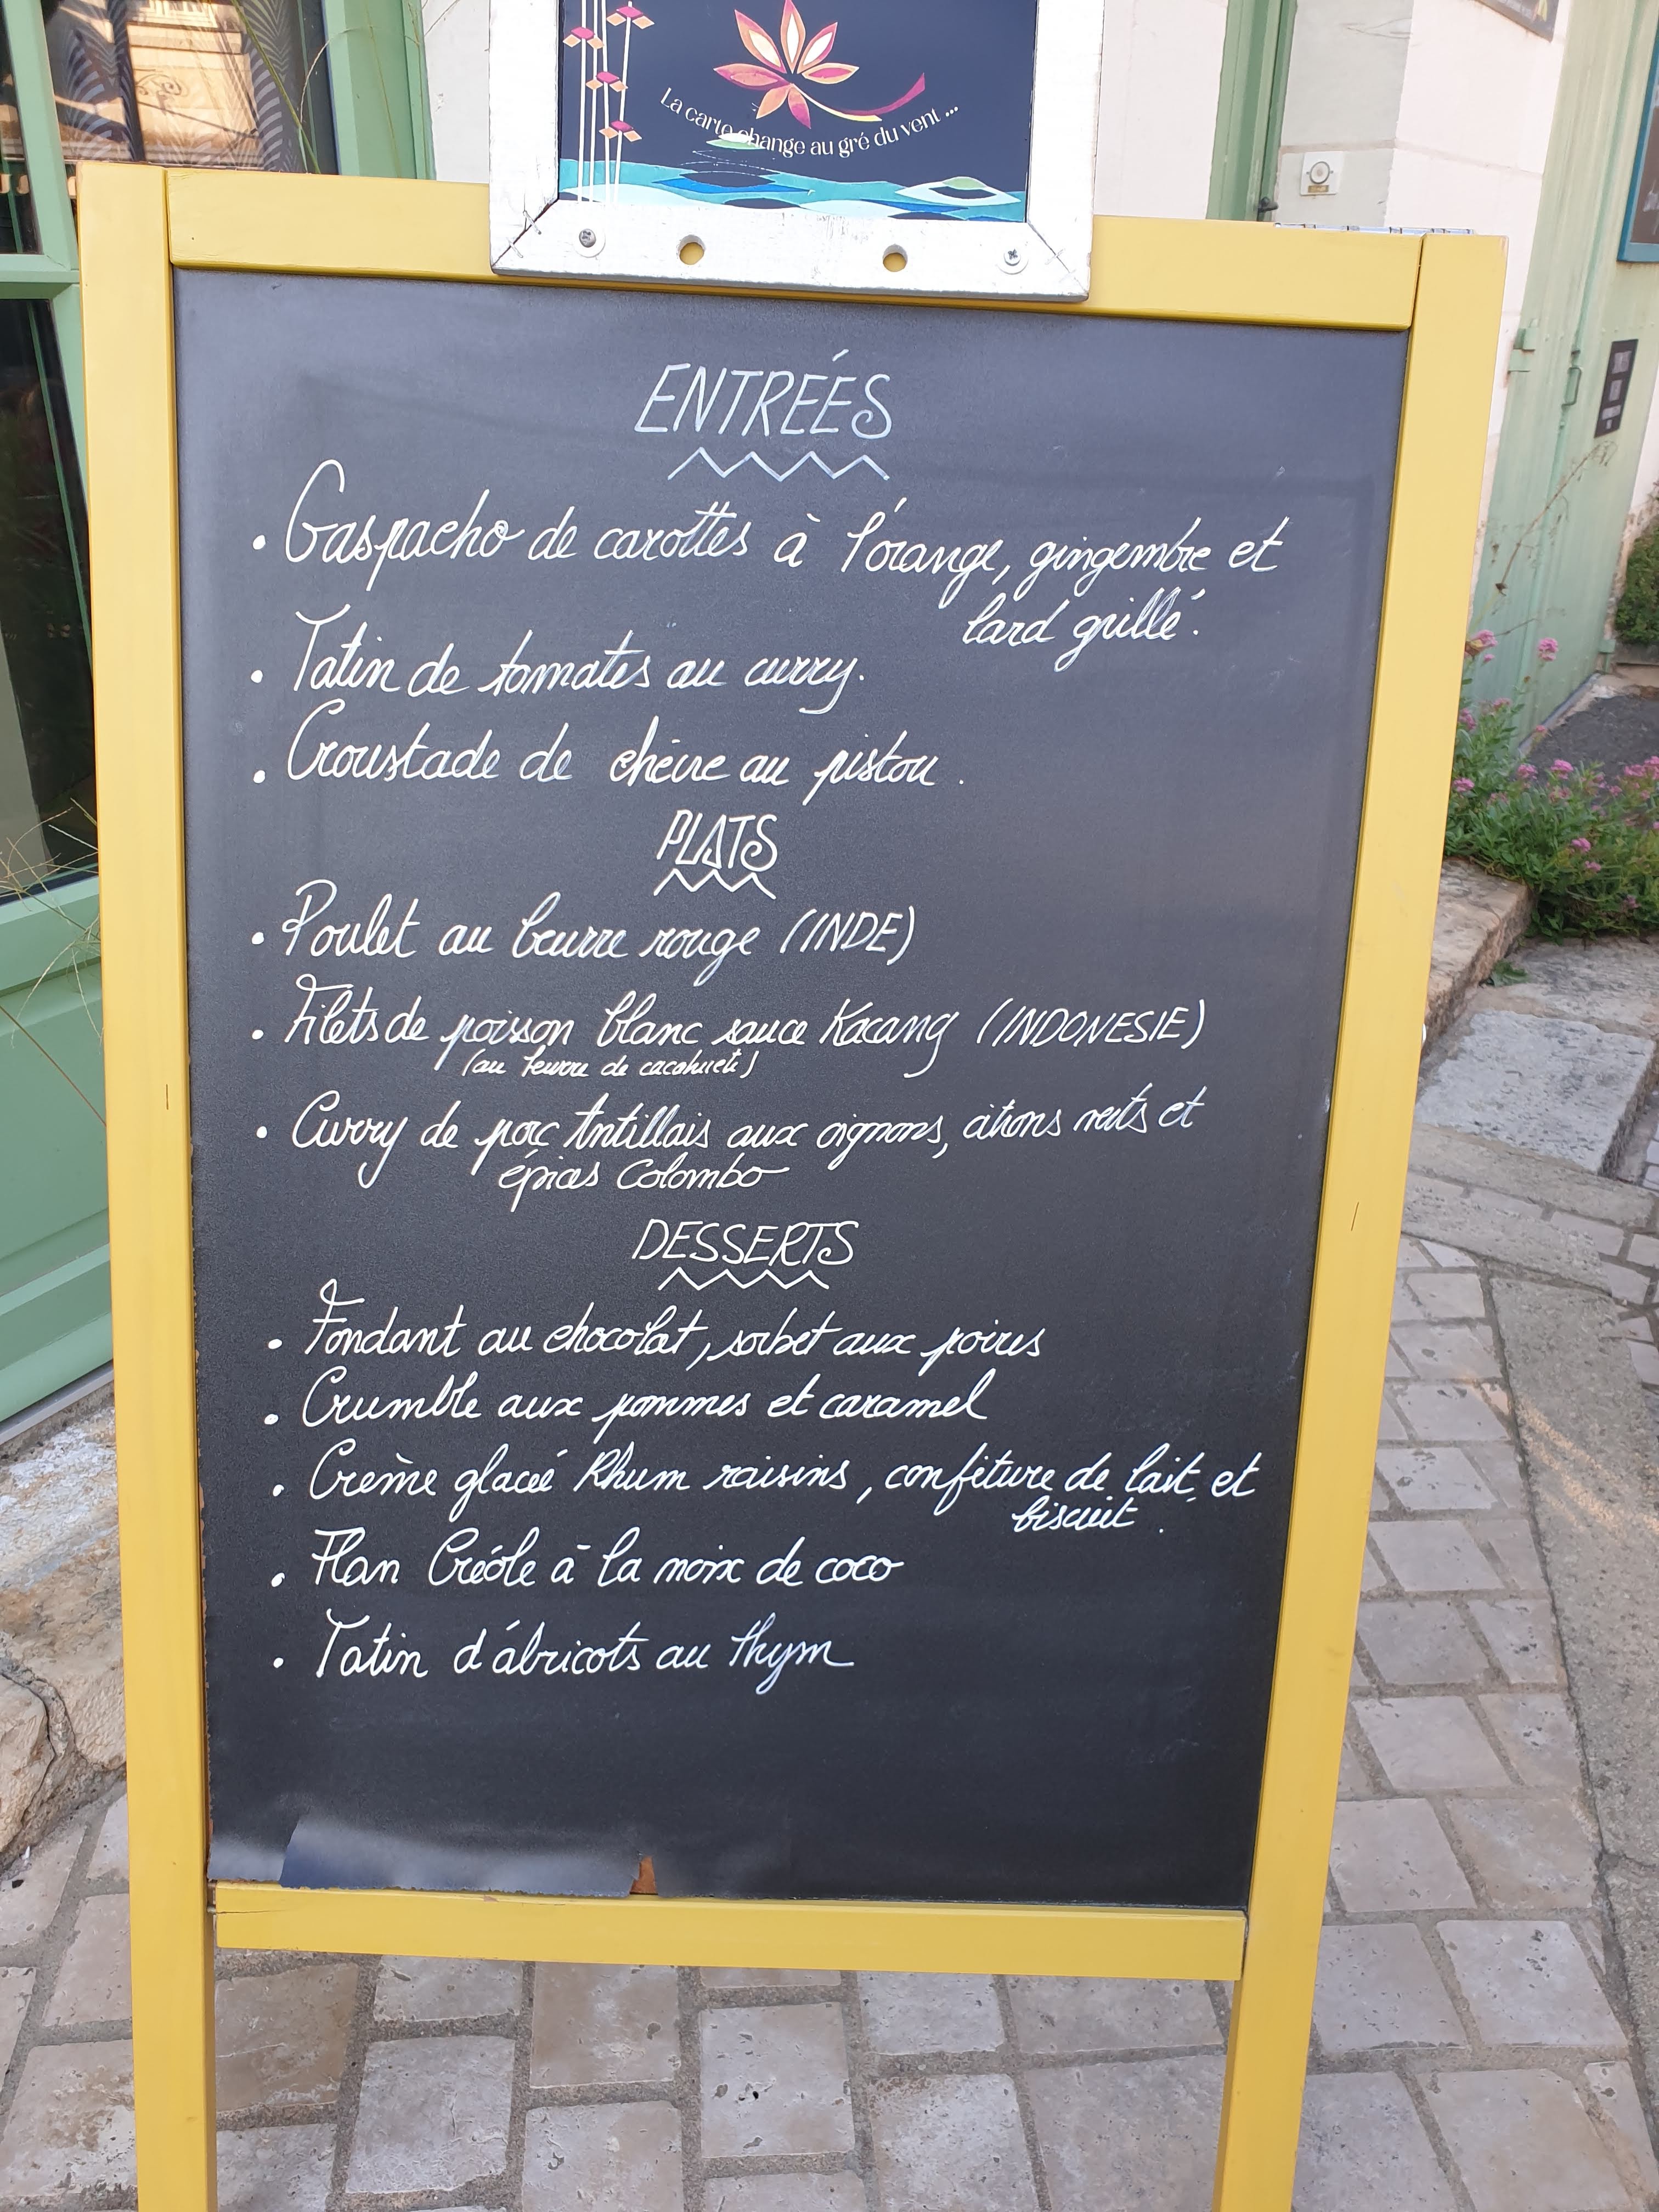 La carte change au gré du vent ...
ENTREÉS
• Gaspacho de carottes à l'orange, gingembre et
lard grillé.
• Tatin de tomates au curry.
• Croustade de chèvre au pistou.
PLATS
• Poulet au beurre rouge (INDE)
• Filets de poisson blanc sauce Kacang (INDONESIE)
(au beurre de cacahuète)
• Curry de porc Antillais aux oignons, citrons verts et
épices Colombo
DESSERTS
• Fondant au chocolat, sorbet aux poires
• Crumble aux pommes et caramel
• Crème glacée Rhum raisins, confiture de lait et
biscuit.
• Flan Créole à la noix de coco
• Tatin d'abricots au thym